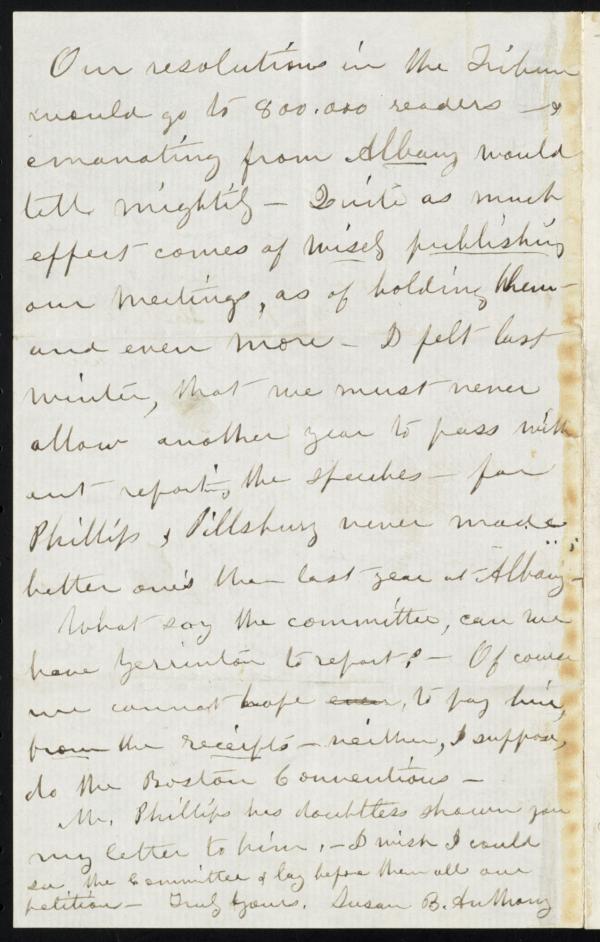 Our resolutions in the Tribune
would go to 800.000 readers — &
emanating from Albany would
tell mightily — Quite as much
effect comes of wisely publishing
our meetings, as of holding them —
and even more — I felt last
winter, that we must never
allow another year to pass with
out reporting the speeches — for
Phillips & Pillsbury never made
better ones than last year at Albany —
What say the committee, can we
have Yerrinton to report? — Of course
we cannot hope even, to pay him,
from the receipts — neither, I suppose,
do the Boston Conventions —
Mr. Phillips has doubtless shown you
my letter to him. — I wish I could
see the Committee & lay before them all our
petition — Truly Yours, Susan B. Anthony